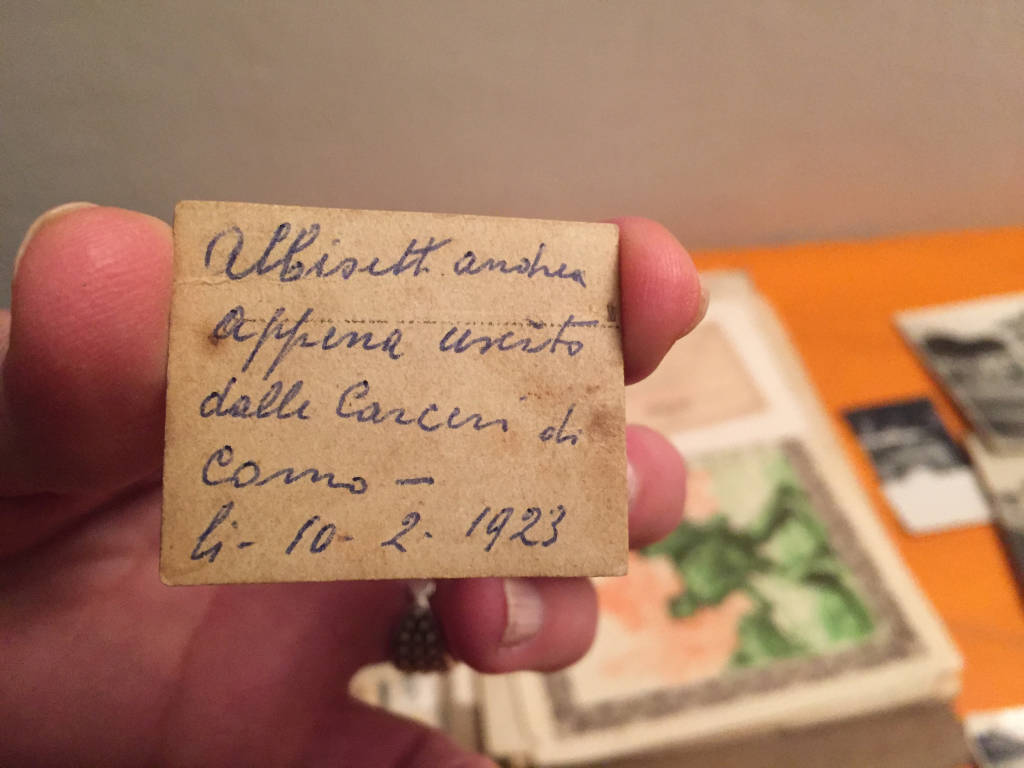 Albisetti andrea
appena uscito
dalle Carceri di
Como -
li - 10 - 2 - 1923